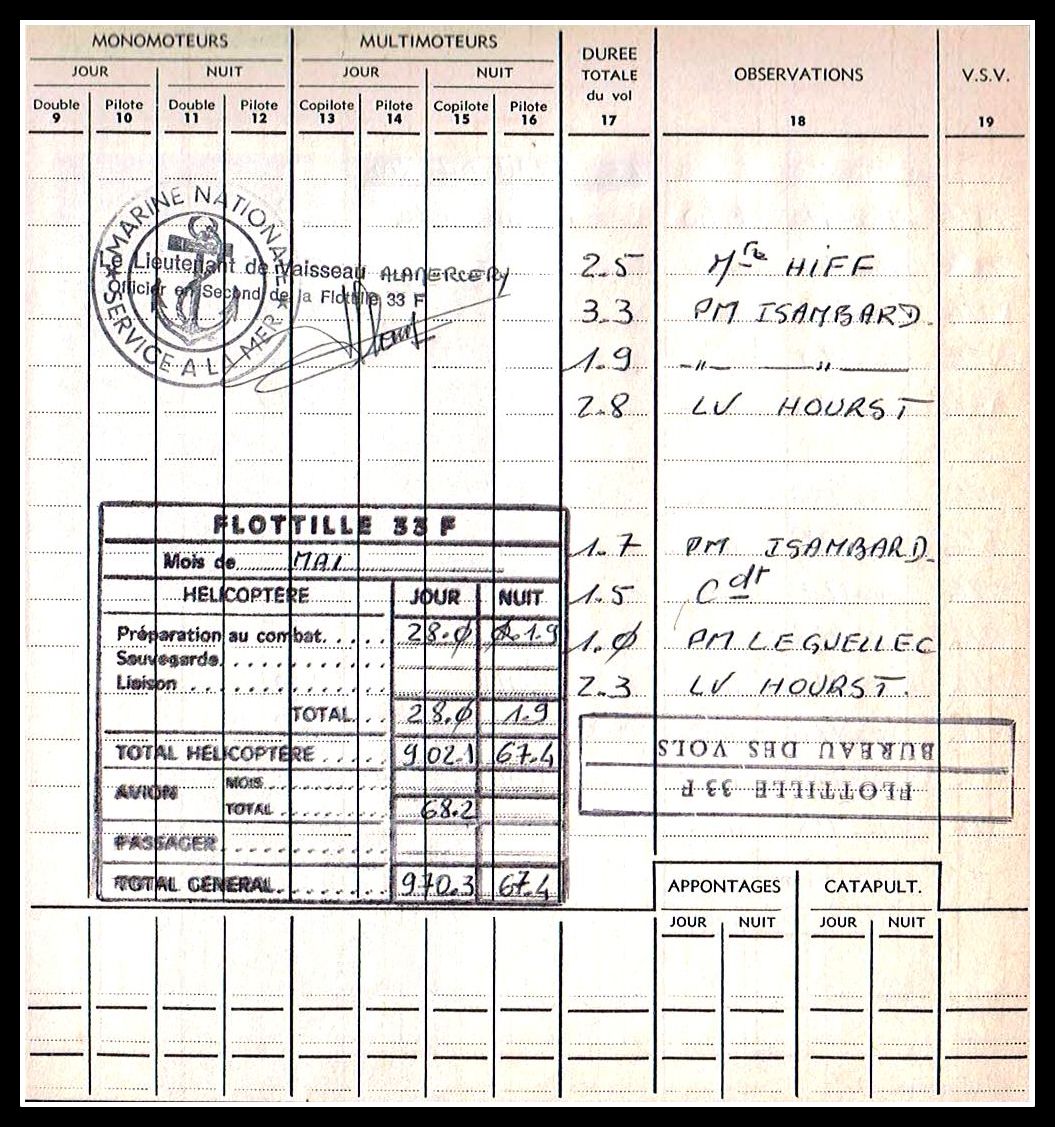 MONOMOTEURS MULTIMOTEURS DUREE TOTALE du vol OBSERVATIONS V.S.V.
JOUR NUIT JOUR NUIT
Double Pilote Double Pilote Copilote Pilote Copilote Pilote
9 10 11 12 13 14 15 16 17 18 19
MARINE NATIONALE
SERVICE A LA MER
Le Lieutenant de Vaisseau ALAMERCERY
Officier en Second de la Flottille 33 F
2.5 Mtre HIFF
3.3 PM ISAMBARD
1.9 -"- -"-
2.8 LV HOURST
1.7 PM ISAMBARD
1.5 Cdt
1.0 PM LEGUELLEC
2.3 LV HOURST.
FLOTTILLE 33 F
Mois de MAI
HELICOPTÈRE JOUR NUIT
Préparation au combat..... 28.0 1.9
Sauvegarde
Liaison
TOTAL... 28.0 1.9
TOTAL HELICOPTÈRE..... 902.1 67.4
AVION MOIS
TOTAL 68.2
PASSAGER
TOTAL GENERAL 970.3 67.4
FLOTTILLE 33 F
BUREAU DES VOLS
APPONTAGES CATAPULT.
JOUR NUIT JOUR NUIT